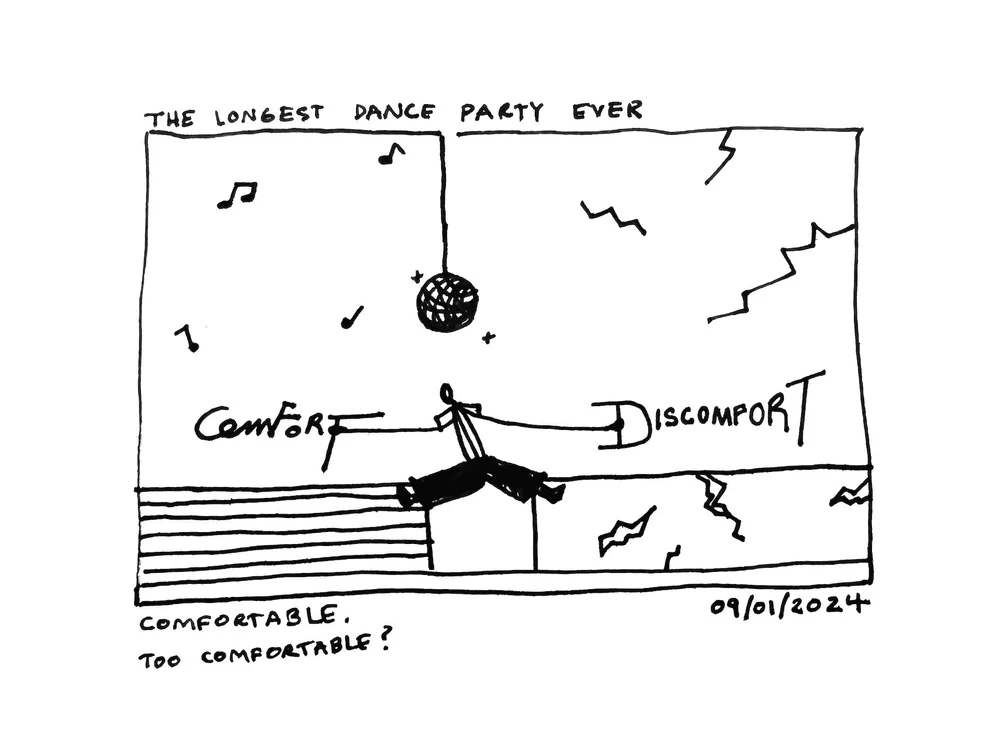 THE LONGEST DANCE PARTY EVER
COMFORT DISCOMFORT
COMFORTABLE. 09/01/2024
TOO COMFORTABLE?